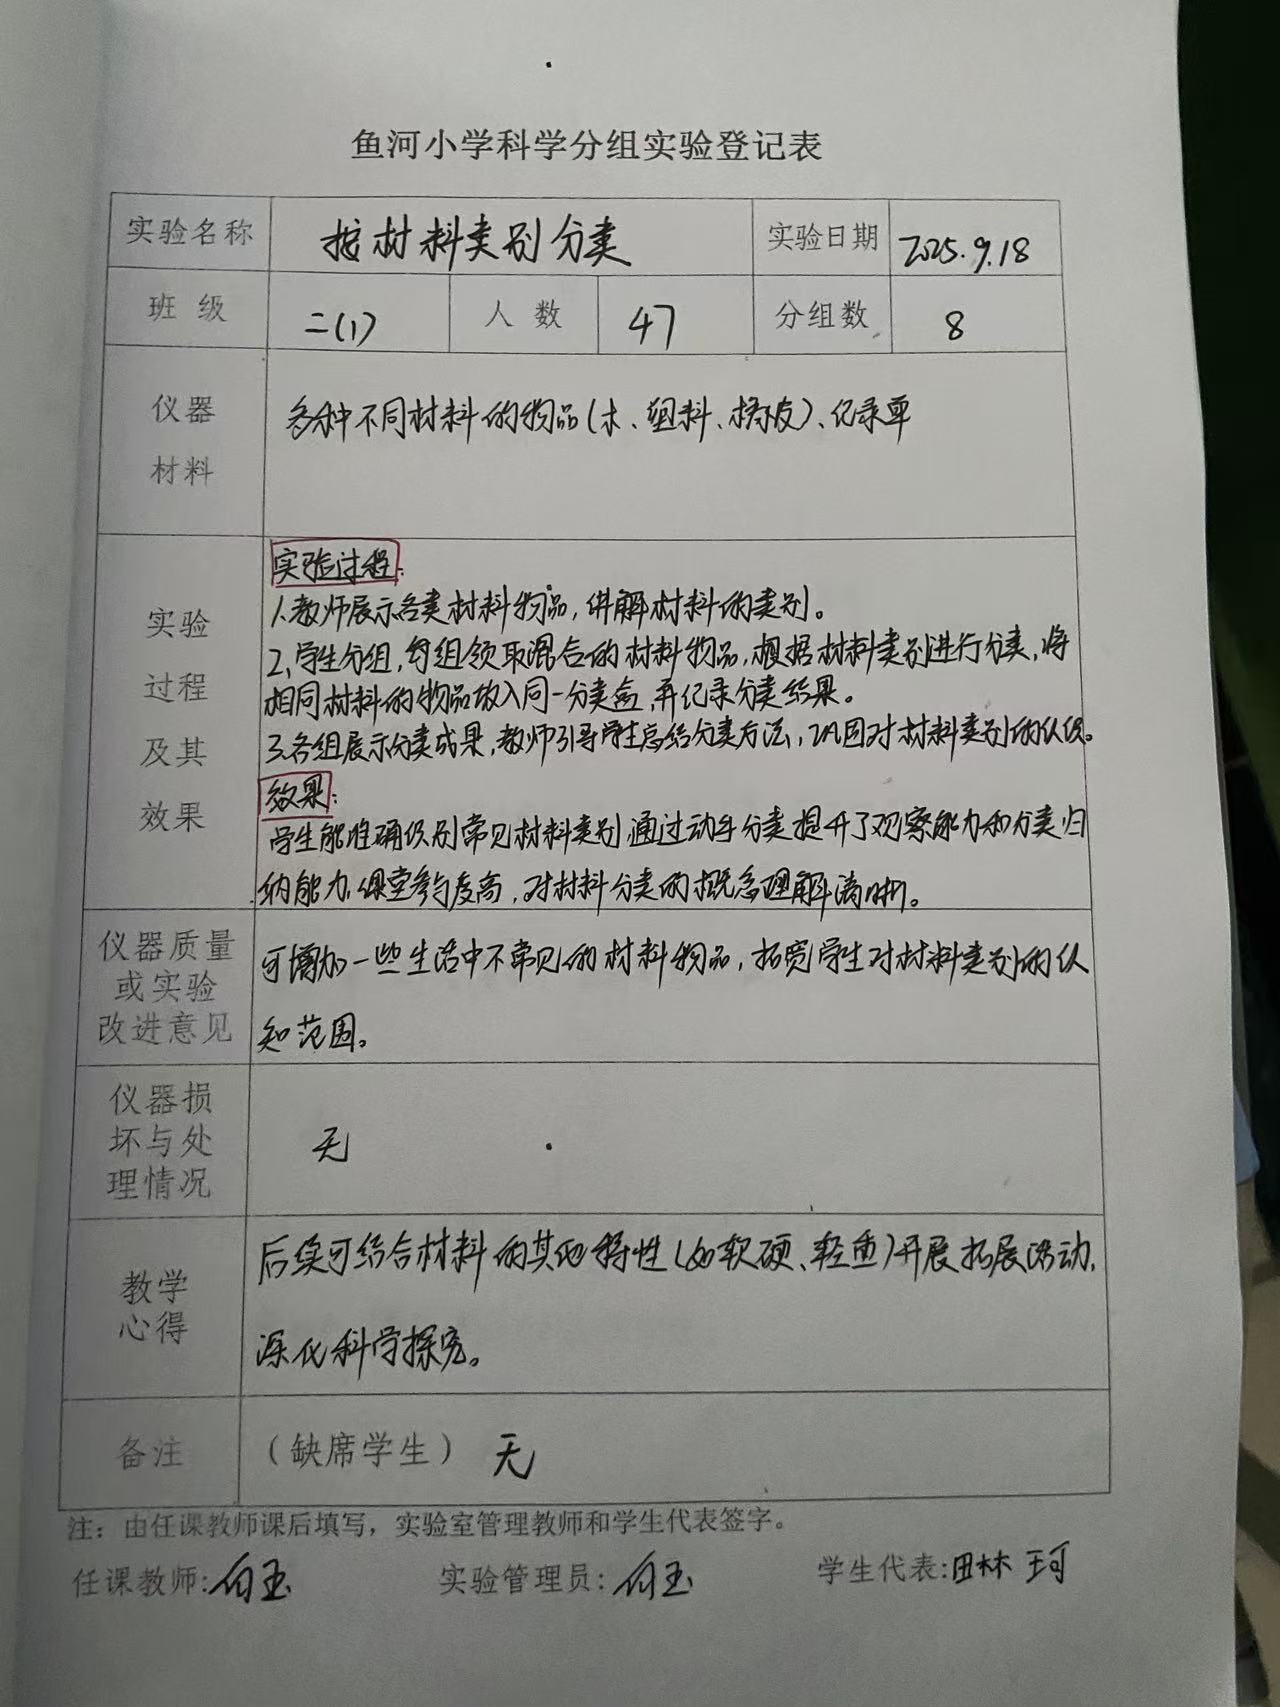 鱼河小学科学分组实验登记表
实验名称 按材料类别分类 实验日期 2025.9.18
班级 二(1) 人数 47 分组数 8
仪器 各种不同材料的物品(木、塑料、橡皮)、记录单
材料
实验过程:
1.教师展示各类材料物品,讲解材料的类别。
实验
2.学生分组,每组领取混合的材料物品,根据材料类别进行分类,将
过程
相同材料的物品放入同一分类盒,再记录分类结果。
及其
3.各组展示分类成果,教师引导学生总结分类方法,巩固对材料类别的认识。
效果
效果:
学生能准确识别常见材料类别,通过动手分类提升了观察能力和分类归
纳能力,课堂参与度高,对材料分类的概念理解清晰。
仪器质量
或实验
改进意见
可增加一些生活中不常见的材料物品,拓宽学生对材料类别的认
知范围。
仪器损
坏与处
理情况
无
教学
心得
后续可结合材料的其他特性(如软硬、轻重)开展拓展活动,
深化科学探究。
备注 (缺席学生) 无
注：由任课教师课后填写，实验室管理教师和学生代表签字。
任课教师:白玉 实验管理员:白玉 学生代表:田林珂